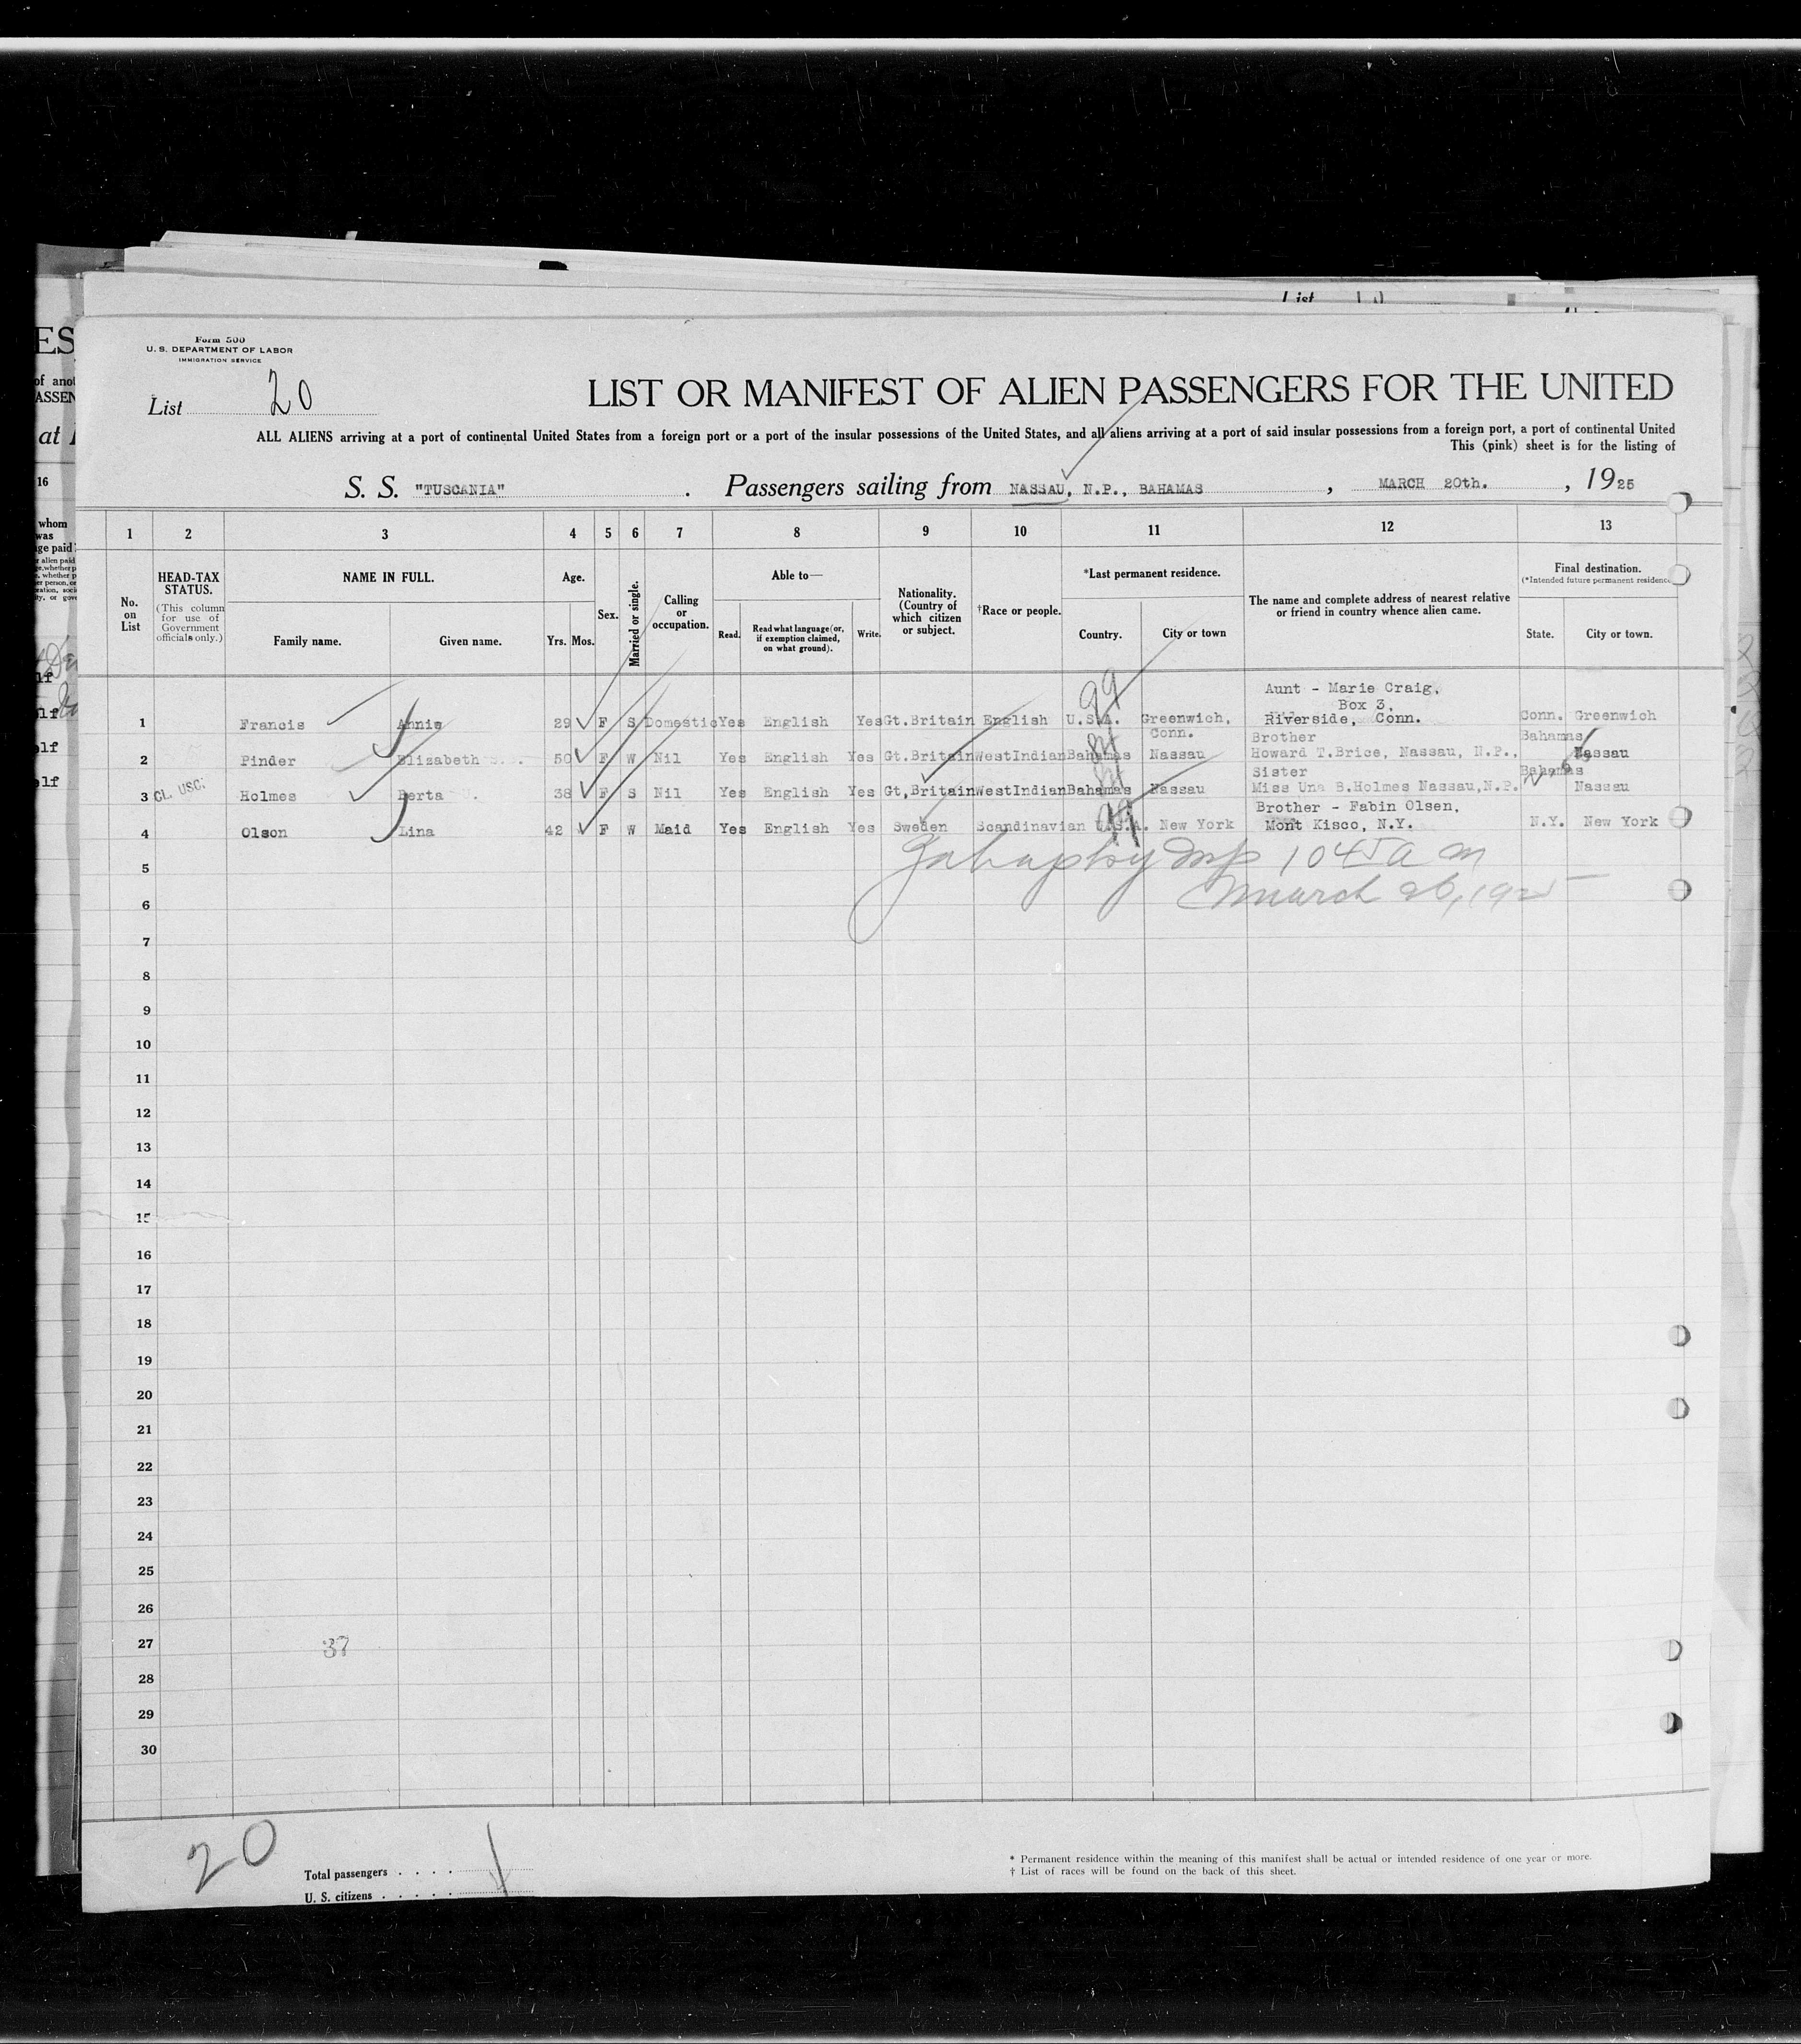 List
ES
of anot
ASSEN
at
16
whom
was
ge paid
lf
elf
elf
Form 500
U. S. DEPARTMENT OF LABOR
IMMIGRATION SERVICE
List 20
LIST OR MANIFEST OF ALIEN PASSENGERS FOR THE UNITED
ALL ALIENS arriving at a port of continental United States from a foreign port or a port of the insular possessions of the United States, and all aliens arriving at a port of said insular possessions from a foreign port, a port of continental United
This (pink) sheet is for the listing of
S. S. "TUSCANIA" . Passengers sailing from NASSAU, N.P., BAHAMAS , MARCH 20th. , 1925
1 2 3 4 5 6 7 8 9 10 11 12 13
No. on List
HEAD-TAX STATUS.
(This column for use of Government officials only.)
NAME IN FULL.
Family name. Given name.
Age.
Yrs. Mos.
Sex.
Married or single.
Calling or occupation.
Able to—
Read. Read what language (or, if exemption claimed, on what ground). Write.
Nationality. (Country of which citizen or subject.
†Race or people.
*Last permanent residence.
Country. City or town
The name and complete address of nearest relative or friend in country whence alien came.
Final destination.
(*Intended future permanent residence
State. City or town.
Aunt - Marie Craig,
Box 3,
1 Francis Annie 29 F S Domestic Yes English Yes Gt.Britain English U.S.A. Greenwich, Conn. Riverside, Conn. Conn. Greenwich
Brother Bahamas
2 Pinder Elizabeth 50 F W Nil Yes English Yes Gt.Britain WestIndian Bahamas Nassau Howard T.Brice, Nassau, N.P., Nassau
Sister Bahamas
3 CL. USC. Holmes Berta 38 F S Nil Yes English Yes Gt,Britain WestIndian Bahamas Nassau Miss Una B.Holmes Nassau,N.P. Nassau
Brother - Fabin Olsen,
4 Olson Lina 42 F W Maid Yes English Yes Sweden Scandinavian U.S.A. New York Mont Kisco, N.Y. N.Y. New York
99
99
5
1045 a m
6
March 26, 1925
7
8
9
10
11
12
13
14
15
16
17
18
19
20
21
22
23
24
25
26
27
37
28
29
30
20
Total passengers . . . .
U. S. citizens . . . . .
* Permanent residence within the meaning of this manifest shall be actual or intended residence of one year or more.
† List of races will be found on the back of this sheet.